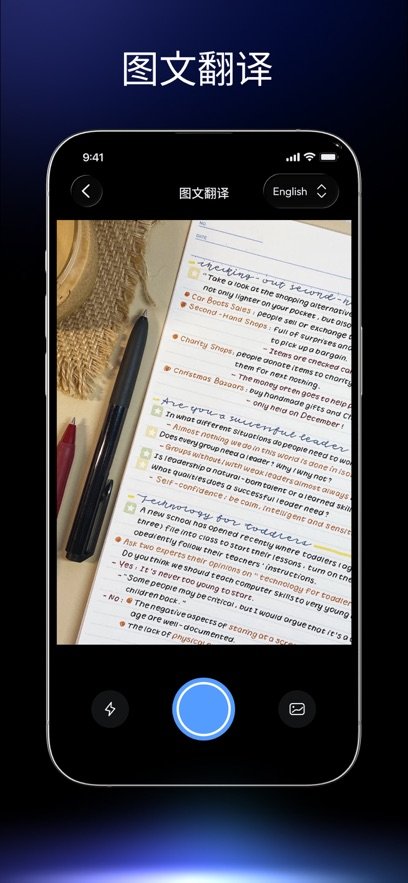 图文翻译
9:41
图文翻译
English
NO.
DATE
checking-out second-h
"Take a look at the shopping alternative
not only lighter on your pocket, but also
Car Boots Sales: people sell or exchange
Second-Hand Shops: Full of surprises and
to pick up a bargain.
- Items are checked care
Charity Shops: people donate items to charity
them for next nothing.
- The money often goes to help p
Christmas Bazaars: buy handmade gifts and Ch
- only held on December!
Are you a successful leader
In what different situations do people need to wor
- Almost nothing we do in this world is done in iso
Does every group need a leader? Why / why not?
- Groups without/with weak leaders almost always
Is leadership a natural-born talent or a learned skill
What qualities does a successful leader need?
- Self-confidence: be calm, intelligent and sensit
Technology for toddlers
A new school has opened recently where toddlers (ag
three) file into class to start their lessons, turn on the
obediently follow their teachers' instructions.
Ask two experts their opinions on "technology for toddler
Do you think we should teach computer skills to very young
- Yes: It's never too young to start.
- "Some people may be critical, but I would argue that it's a
children back."
- No: The negative aspects of staring at a scree
age are well-documented.
The lack of physical